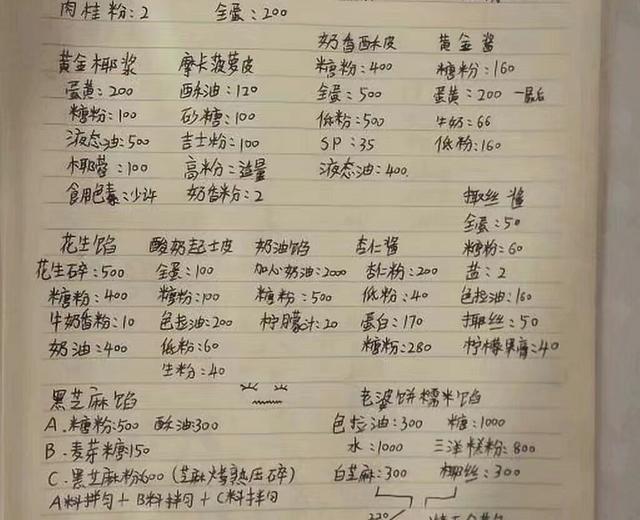 肉桂粉:2 全蛋:200
奶香酥皮 黄金酱
黄金椰浆 摩卡菠萝皮 糖粉:400 糖粉:160
蛋黄:200 酥油:120 全蛋:500 蛋黄:200 一最后
糖粉:100 砂糖:100 低粉:500 牛奶:66
液态油:500 吉士粉:100 SP:35 低粉:160
椰蓉:100 高粉:适量 液态油:400
食用色素:少许 奶香粉:2 揶丝酱
全蛋:50
花生馅 酸奶起士皮 奶油馅 杏仁酱 糖粉:60
花生碎:500 全蛋:100 加心奶油:2000 杏仁粉:200 盐:2
糖粉:400 糖粉:100 糖粉:500 低粉:40 色拉油:160
牛奶香粉:10 色拉油:200 柠檬汁:20 蛋白:170 揶丝:50
奶油:400 低粉:60 糖粉:280 柠檬果膏:40
生粉:40
黑芝麻馅 老婆饼糯米馅
A.糖粉:500 酥油:300 色拉油:300 糖:1000
B.麦芽糖:150 水:1000 三洋糕粉:800
C.黑芝麻粉600(芝麻烤熟压碎) 白芝麻:300 椰丝:300
A料拌匀+B料拌匀+C料拌匀
220